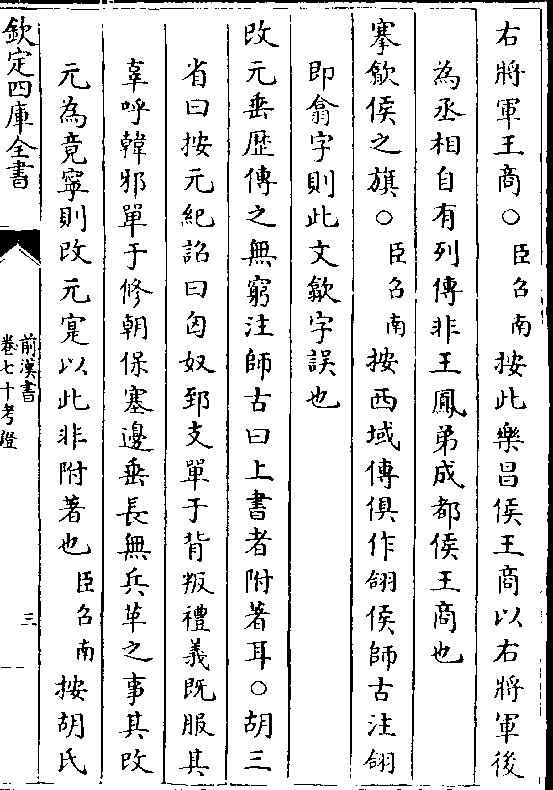 右將軍王商○臣召南按此樂昌侯王商以右將軍後
為丞相自有列傳非王鳳弟成都侯王商也
搴歙侯之旗○臣召南按西域傳俱作翖侯師古注翖
即翕字則此文歙字誤也
改元垂歴傳之無窮注師古曰上書者附著耳○胡三
省曰按元紀詔曰匈奴郅支單于背叛禮義既服其
辜呼韓邪單于修朝保塞邊垂長無兵革之事其改
元為竟寧則改元寔以此非附著也臣召南按胡氏
欽定四庫全書
前漢書
卷七十考證
三